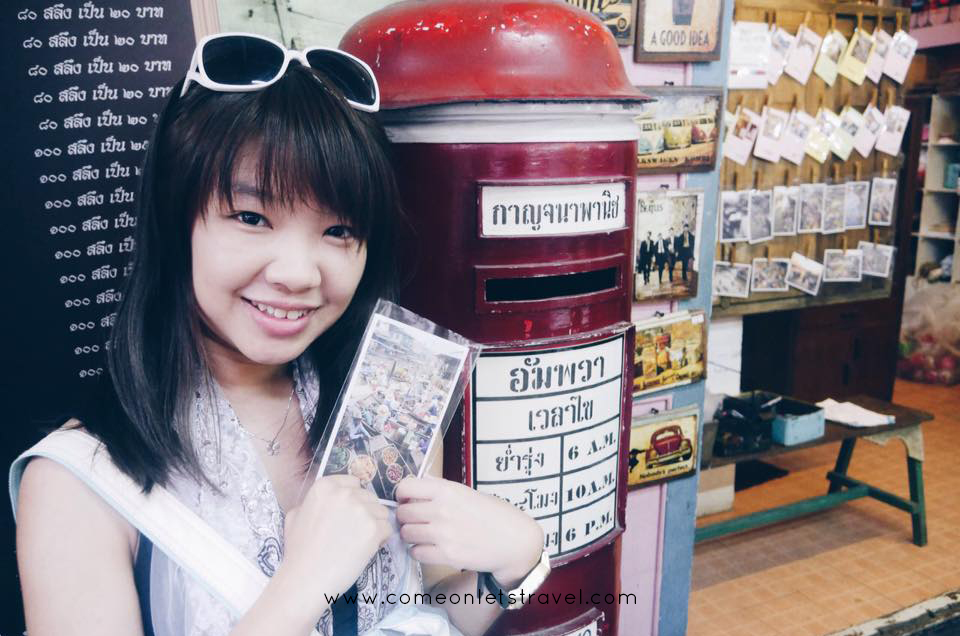 ๘๐ สลึง เป็น ๒๐ บาท
๘๐ สลึง เป็น ๒๐ บาท
๘๐ สลึง เป็น ๒๐ บาท
๘๐ สลึง เป็น ๒๐ บาท
๘๐ สลึง เป็น ๒๐
๑๐๐ สลึง เป็น ๒๕
๑๐๐ สลึง เป็น
๑๐๐ สลึง เป็น
๑๐๐ สลึง เป็น
๑๐๐ สลึง เป็น
๑๐๐ สลึง เป็น
๑๐๐ สลึง
๑๐๐
๑๐๐
๑๐๐
กาญจนาพานิช
อัมพวา
เวลาไข
ย่ำรุ่ง 6 A.M.
10 A.M.
6 P.M.
A GOOD IDEA
Nobody's perfect
www.comeonletstravel.com